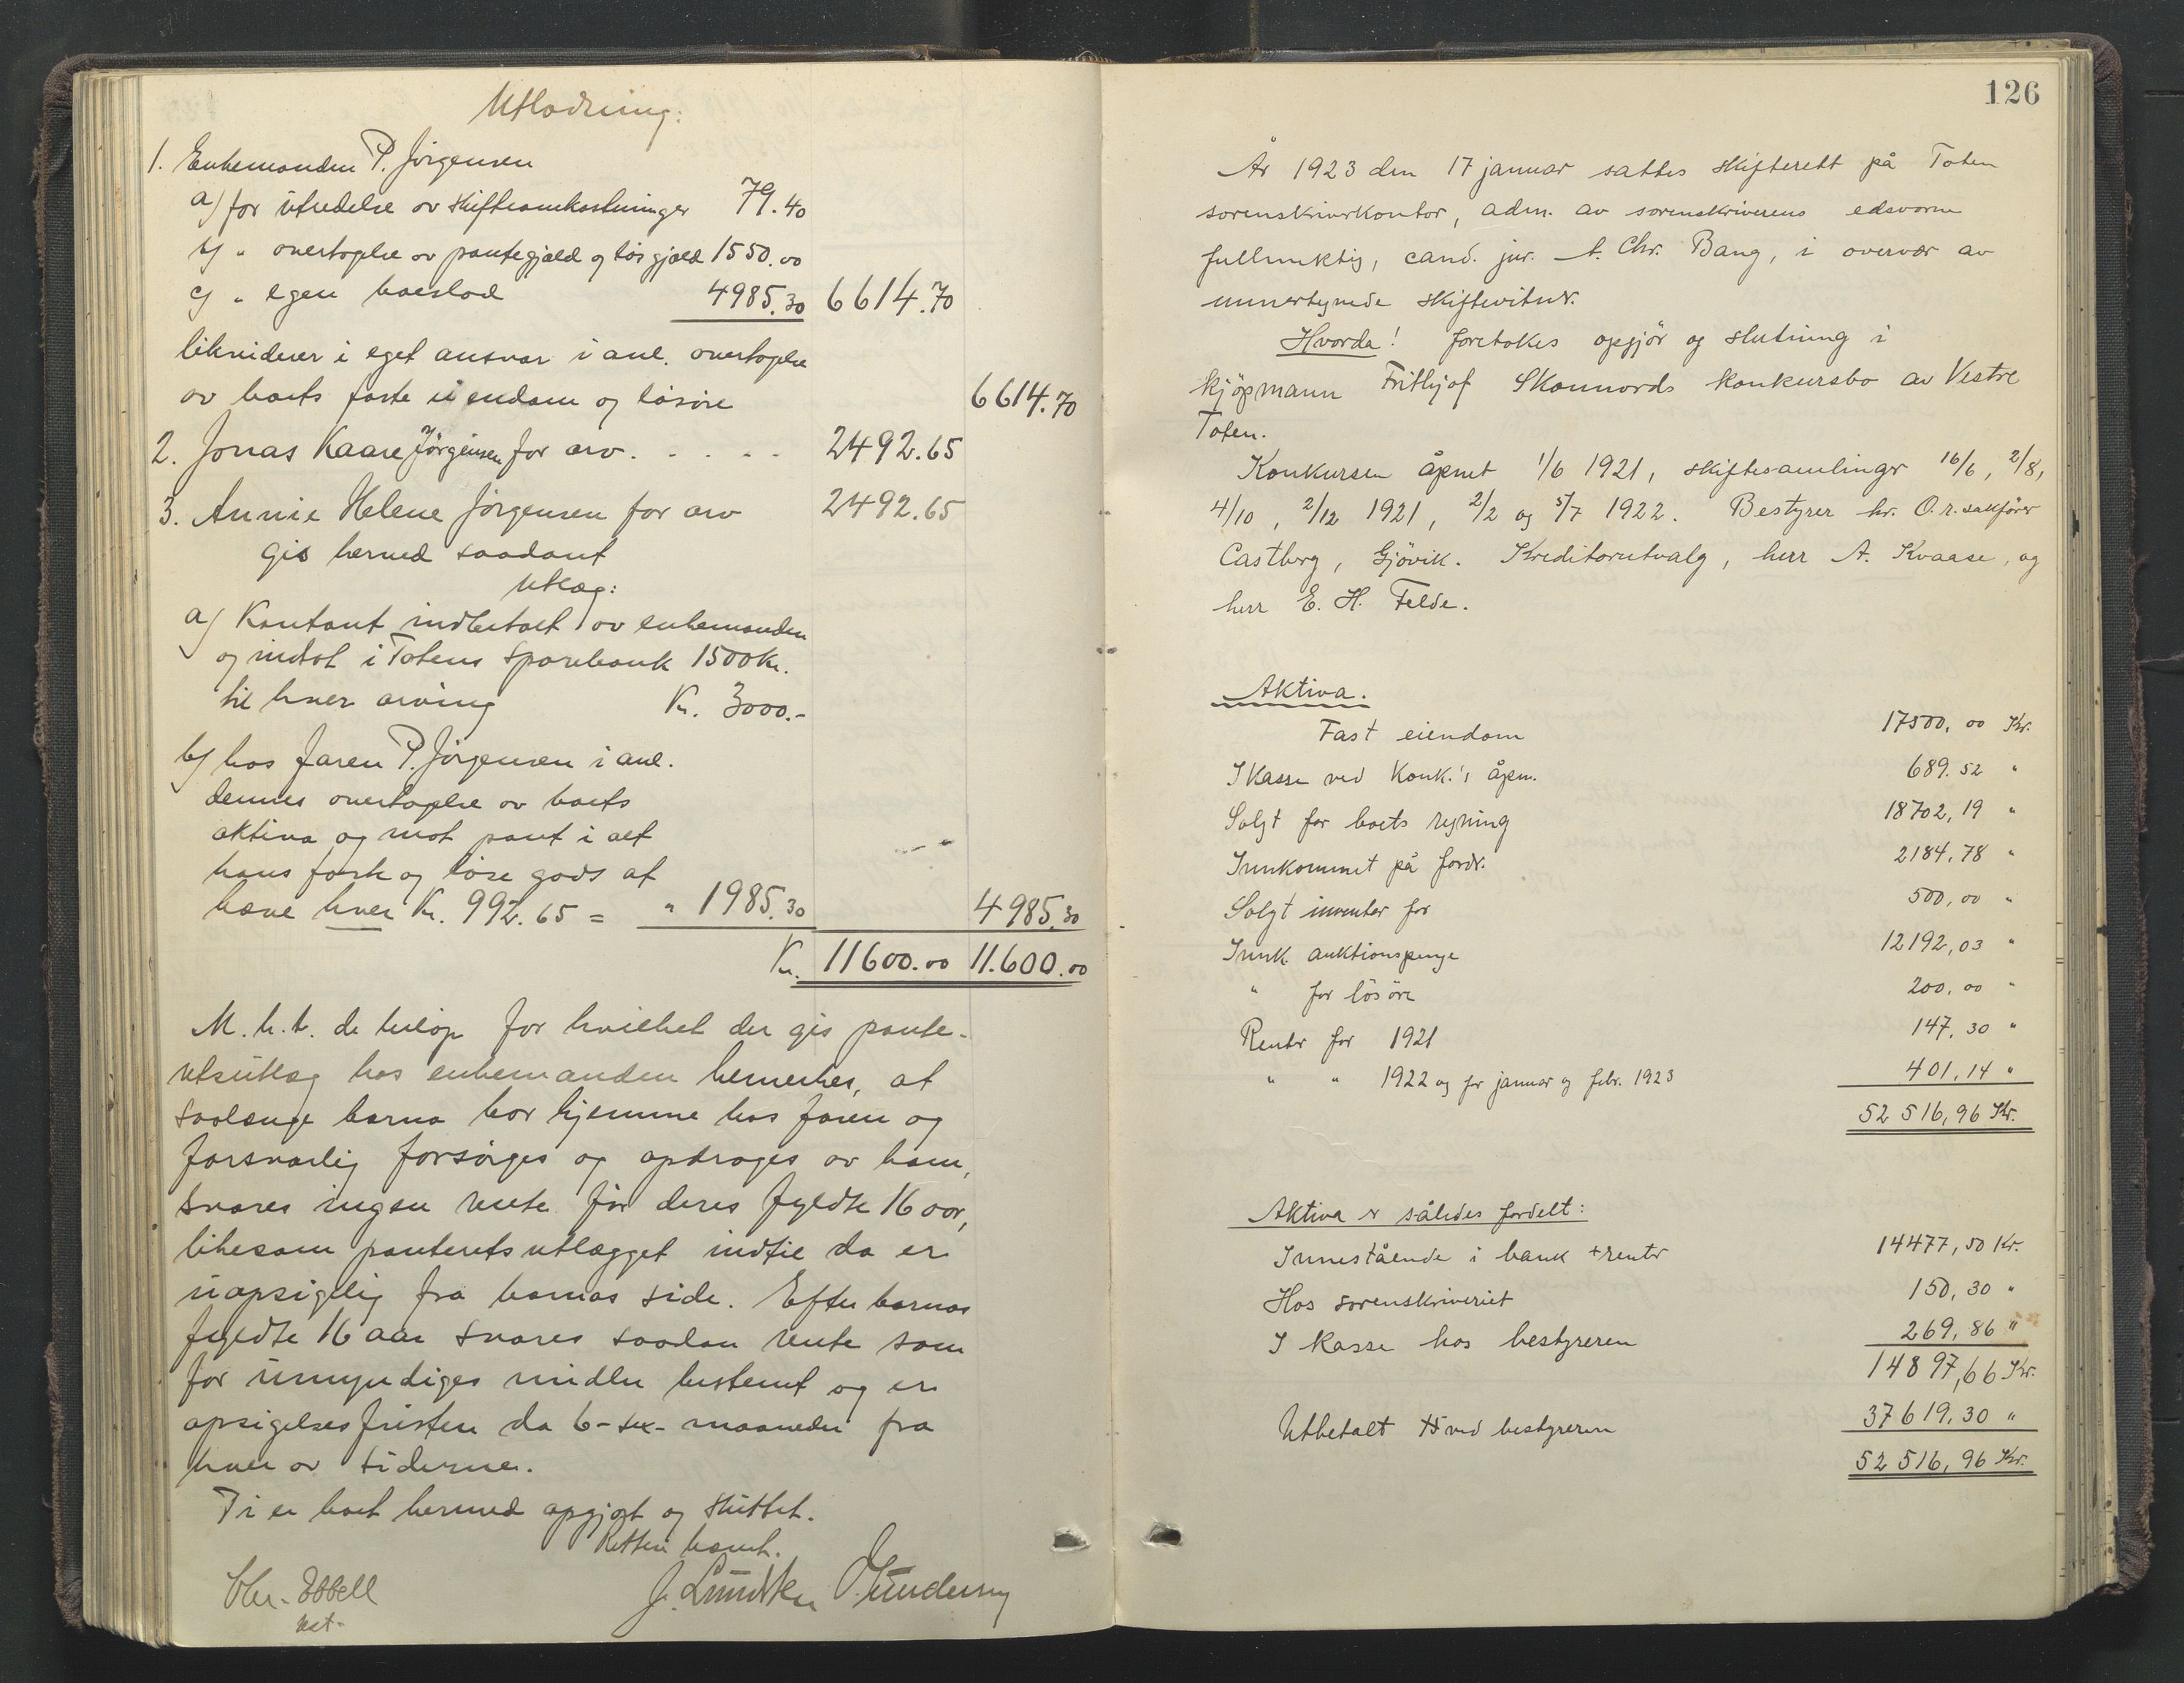 Utlodning:
1. Enkemanden P. Jörgensen
a) for utredelse av skifteomkostninger 79.40
b) " overtagelse av pantegjæld og løsgjæld 1550.00
c) " egen boeslod 4985.30 6614.70
likviderer i eget ansvar i anl. overtagelse
av boets faste eiendom og løsøre 6614.70
2. Jonas Kaare Jörgensen for arv. . . . . 2492.65
3. Annie Helene Jörgensen for arv 2492.65
gis herved saadant
Utlæg:
a) Kontant indbetalt av enkemanden
og indsat i Totens Sparebank 1500 Kr.
til hver arving Kr. 3000.-
b) hos faren P. Jörgensen i anl.
dennes overtagelse av boets
aktiva og mot pant i alt
hans faste og løse gods at
hæve hver Kr. 992.65 = " 1985.30 4985.30
Kr. 11600.00 11.600.00
M. h. t. de beløp for hvilket der gis pante-
utsutlæg hos enkemanden bemerkes, at
saalænge barna bor hjemme hos faren og
forsvarlig forsørges og opdrages av ham,
svares ingen rente før deres fyldte 16 aar,
likesom panteretsutlægget indtil da er
uopsigelig fra barnas side. Efter barnas
fyldte 16 aar svares saadan rente som
for umyndiges midler bestemt og er
opsigelsesfristen da 6 - sex - maaneder fra
hver av siderne.
Ti er boet hermed opgjort og sluttet.
Retten hævet.
Chr. Ebbell
kst.
126
År 1923 den 17 januar sattes skifterett på Toten
sorenskriverkontor, adm. av sorenskriverens edsvorne
fullmektig, cand. jur. A. Chr. Bang, i overvær av
unnertegnede skiftevitner.
Hvorda! foretokes opgjör og slutning i
kjöpmann Frithjof Skonnords konkursbo av Vestre
Toten.
Konkursen åpnet 1/6 1921, skiftesamlinger 16/6, 2/8,
4/10, 2/12 1921, 2/2 og 5/7 1922. Bestyrer hr. O.r.sakförer
Castberg, Gjövik. Kreditorutvalg, herr A. Kvaase, og
herr E. H. Felde.
Aktiva.
Fast eiendom 17500,00 Kr.
I kasse ved Konk.'s åpn. 689.52 "
Solgt for boets regning 18702,19 "
Innkommet på fordr. 2184,78 "
Solgt inventar for 500,00 "
Innk. auktionspenge 12192,03 "
" for lösöre 200,00 "
Renter for 1921 147,30 "
" " 1922 og for januar og febr. 1923 401,14 "
52 516,96 Kr.
Aktiva er således fordelt:
Innestående i bank + renter 14477,50 Kr.
Hos sorenskriveriet 150,30 "
I kasse hos bestyreren 269,86 "
14897,66 Kr.
Utbetalt ved bestyreren 37619,30 "
52 516,96 Kr.